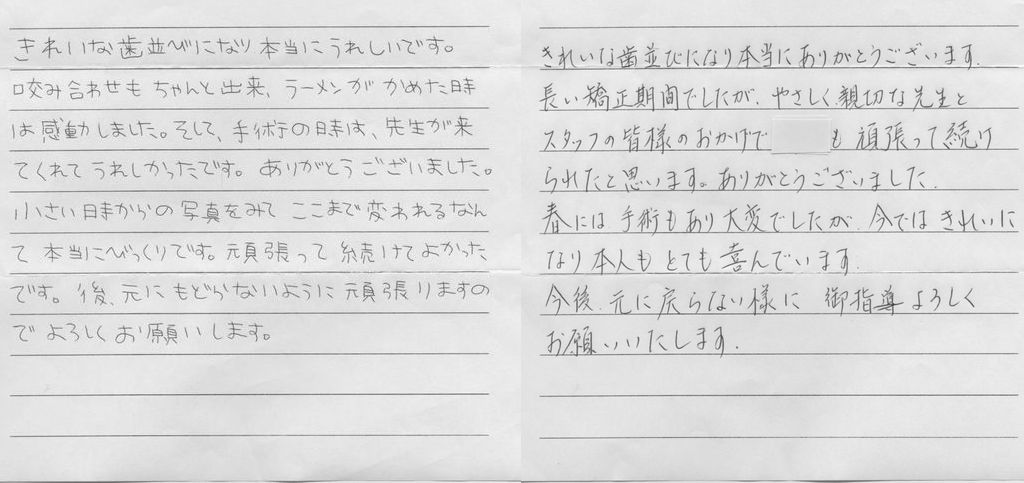 きれいな歯並びになり本当にうれしいです。
咬み合わせもちゃんと出来、ラーメンがかめた時
は感動しました。そして、手術の時は、先生が来
てくれてうれしかったです。ありがとうございました。
小さい時からの写真をみてここまで変われるなん
て本当にびっくりです。頑張って続けてよかった
です。後、元にもどらないように頑張りますの
でよろしくお願いします。
きれいな歯並びになり本当にありがとうございます。
長い矯正期間でしたが、やさしく、親切な先生と
スタッフの皆様のおかげで も頑張って続け
られたと思います。ありがとうございました。
春には手術もあり大変でしたが、今ではきれいに
なり本人もとても喜んでいます。
今後、元に戻らない様に御指導よろしく
お願いいたします。